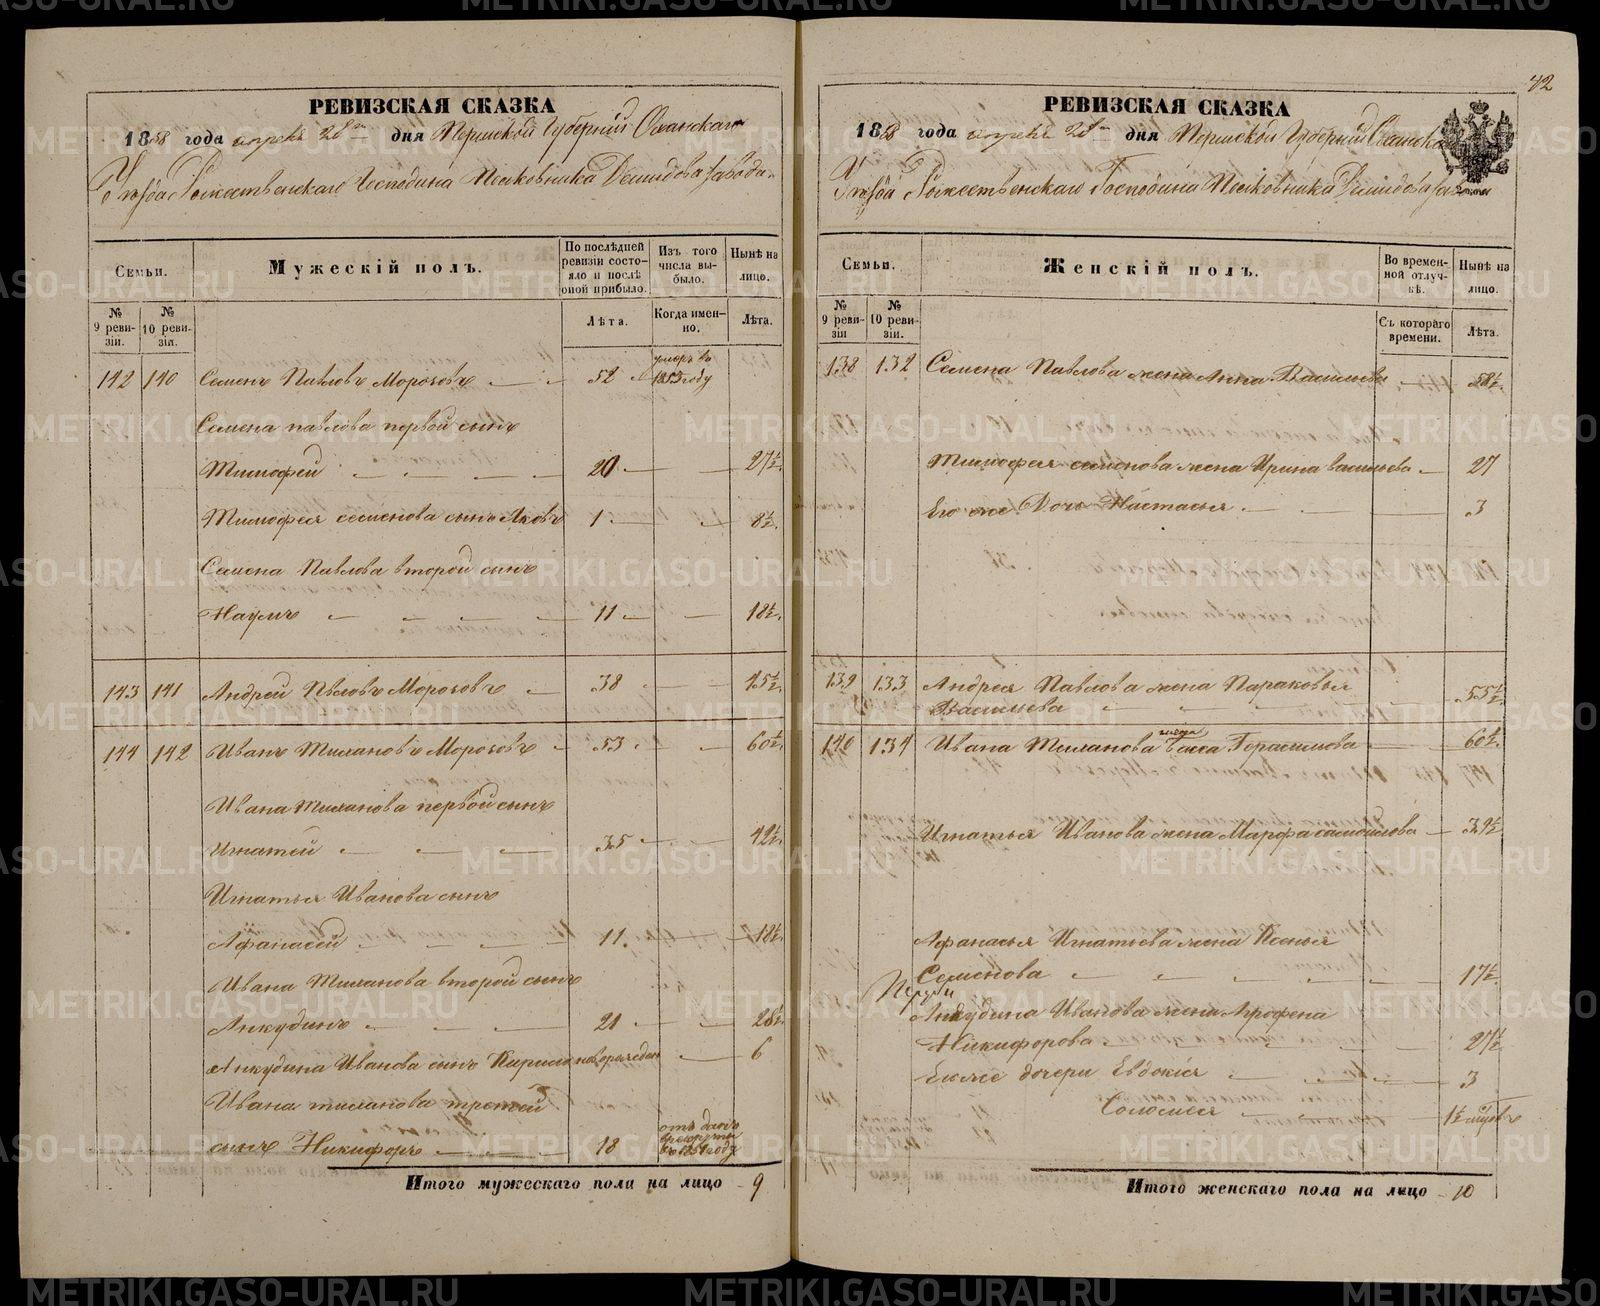 РЕВИЗСКАЯ СКАЗКА
1858 года апреля 28го дня Пермской Губернии Оханскаго
Уѣзда Рожественскаго Господина Полковника Демидова завода.
Семьи.
Мужескій полъ.
По послѣдней ревизіи состояло и послѣ оной прибыло.
Изъ того числа выбыло.
Нынѣ на лицо.
№ 9 ревизіи.
№ 10 ревизіи.
Лѣта.
Когда именно.
Лѣта.
142 140 Семенъ Павловъ Морозовъ 52 умеръ въ 1853 году
Семена павлова первой сынъ
Тимофей 20 27½.
Тимофея семенова сынъ Яковъ 1 8½.
Семена Павлова второй сынъ
Наумъ 11 18½.
143 141 Андрей Пвловъ Морозовъ 38 45½.
144 142 Иванъ Милановъ Морозовъ 53 60½.
Ивана Миланова первой сынъ
Игнатей 35 42½.
Игнатья Иванова сынъ
Афанасей 11. 18½.
Ивана Миланова второй сынъ
Анкудинъ 21 28½.
Анкудина Иванова сынъ Кирила новорожден 6
Ивана миланова третей
сынъ Никифоръ 18 отъ данъ в рекруты въ 1854 году
Итого мужескаго пола на лицо 9
42
РЕВИЗСКАЯ СКАЗКА
1858 года апреля 28го дня Пермской Губернии Оханска
Уѣзда Рожественскаго Господина Полковника Демидова
Семьи.
Женскій полъ.
Во временной отлучкѣ.
Нынѣ на лицо.
№ 9 ревизіи
№ 10 ревизіи.
Съ котораго времени.
Лѣта.
138 132 Семена Павлова жена Анна Васильева 58½.
Тимофея семенова жена Ирина васильева 27
Его же Дочь Настасья 3
139 133 Андрея Павлова жена Параковья
Васильева 55½
140 134 Ивана Миланова жена Васса Герасимова 60½.
Игнатья Иванова жена Марфа самойлова 39½
Афанасья Игнатьева жена Ксенья
Семенова 17½.
Анкудина Иванова жена Агрофена
Никифорова 27½
Ея же дочери Евдокія 3
Соломея 1½ мѣсецовъ
Итого женскаго пола на лицо 10
METRIKI.GASO-URAL.RU